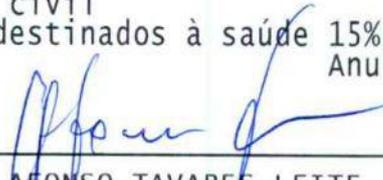 civil
destinados à saúde 15%
Anu
AFONSO TAVARES LEITE